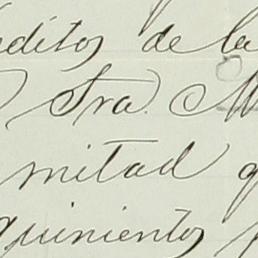 éditos de la
Sra. M
mitad q
quinientos p